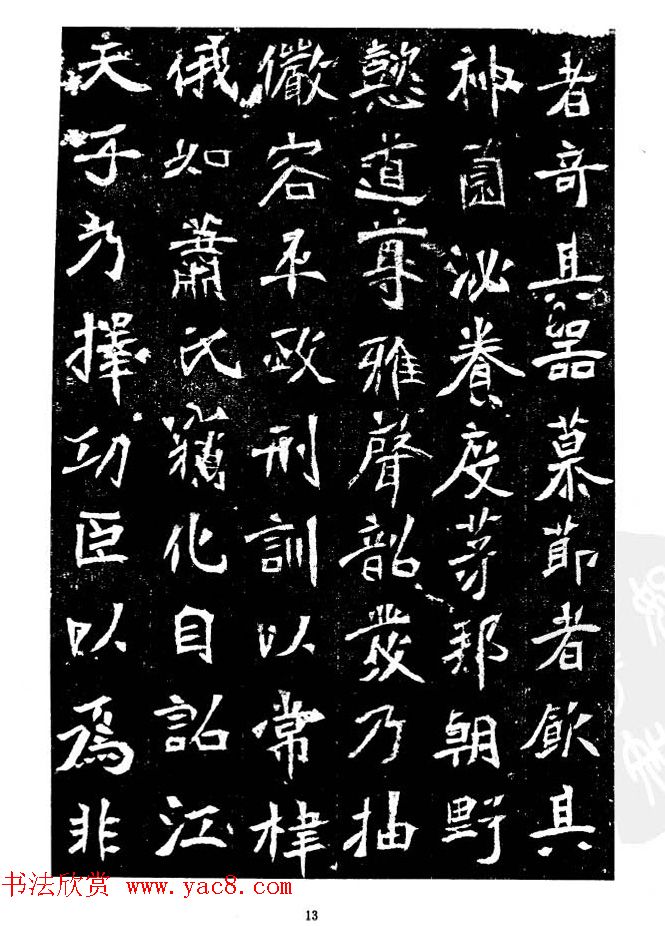 者奇其器慕節者飲其
神泌養度芳邦朝野
懿道尊雅聲韶發乃抽
儼容丕政刑訓以常
俄如蕭氏化自詔江
天子乃擇功臣以為非
书法欣赏 www.yac8.com
13